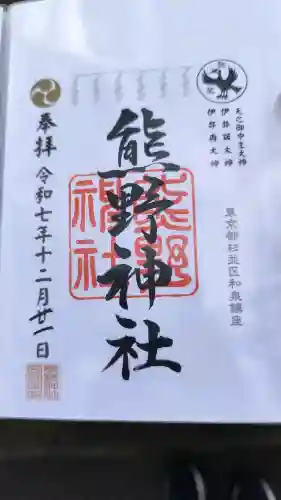 天之御中主大神
伊弉諾大神
伊弉冉大神
東京都杉並区和泉鎮座
熊野神社
熊野
神社
奉拝 令和七年十二月廿一日